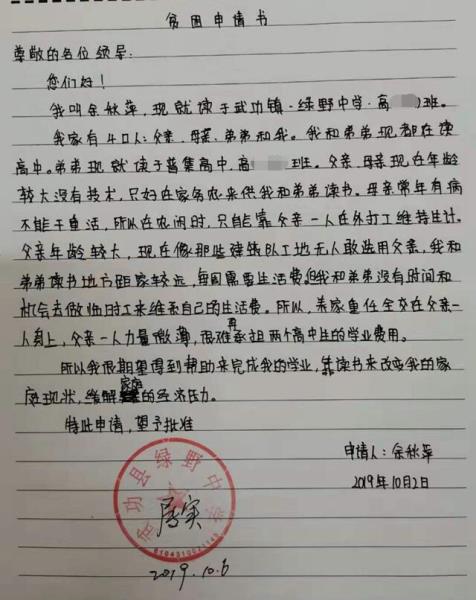 贫困申请书
尊敬的各位领导:
您们好!
我叫余秋萍,现就读于武功镇·绿野中学·高班。
我家有4口人:父亲、母亲、弟弟和我。我和弟弟现都在读
高中。弟弟现就读于普集高中,高班。父亲、母亲现在年龄
较大没有技术,只好在家务农来供我和弟弟读书。母亲常年有病
不能干重活,所以在农闲时,只能靠父亲一人在外打工维持生计。
父亲年龄较大,现在像那些建筑队工地无人敢选用父亲,我和
弟弟读书地方距家较远,每周需要生活费。但我和弟弟没有时间和
机会去做临时工来维系自己的生活费。所以,养家重任全交在父亲一
人身上,父亲一人力量微薄,很难再承担两个高中生的学业费用。
所以我很期望得到帮助来完成我的学业,靠读书来改变我的家
庭现状,缓解家庭的经济压力。
特此申请,望予批准
申请人:余秋萍
2019年10月2日
武功县绿野中学
属实
2019.10.6